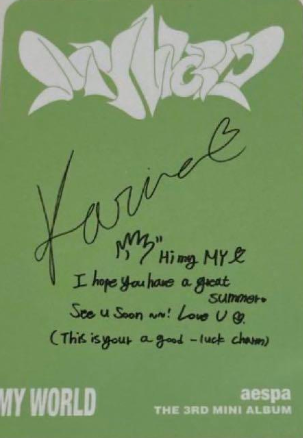 MY WORLD
Karina
"Hi my MY
I hope you have a great
summer.
See u soon ~! Love U
(This is your a good-luck charm)
MY WORLD
aespa
THE 3RD MINI ALBUM